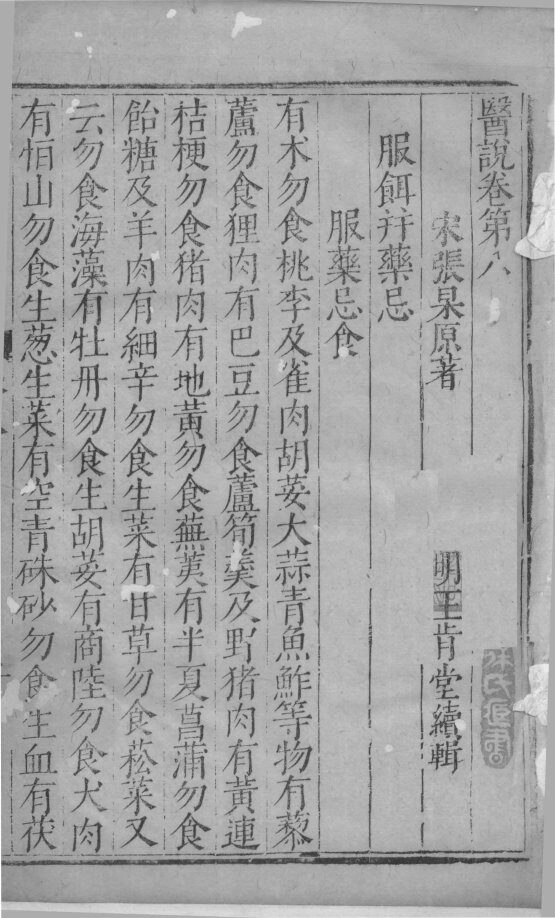 醫說卷第八
宋張杲原著　明王肯堂續輯
服餌并藥忌
服藥忌食
有朮勿食桃李及雀肉胡荽大蒜青魚鮓等物有藜
蘆勿食狸肉有巴豆勿食蘆筍羹及野猪肉有黃連
桔梗勿食猪肉有地黃勿食蕪荑有半夏菖蒲勿食
飴糖及羊肉有細辛勿食生菜有甘草勿食菘菜又
云勿食海藻有牡丹勿食生胡荽有商陸勿食犬肉
有恒山勿食生葱生菜有空青硃砂勿食生血有茯